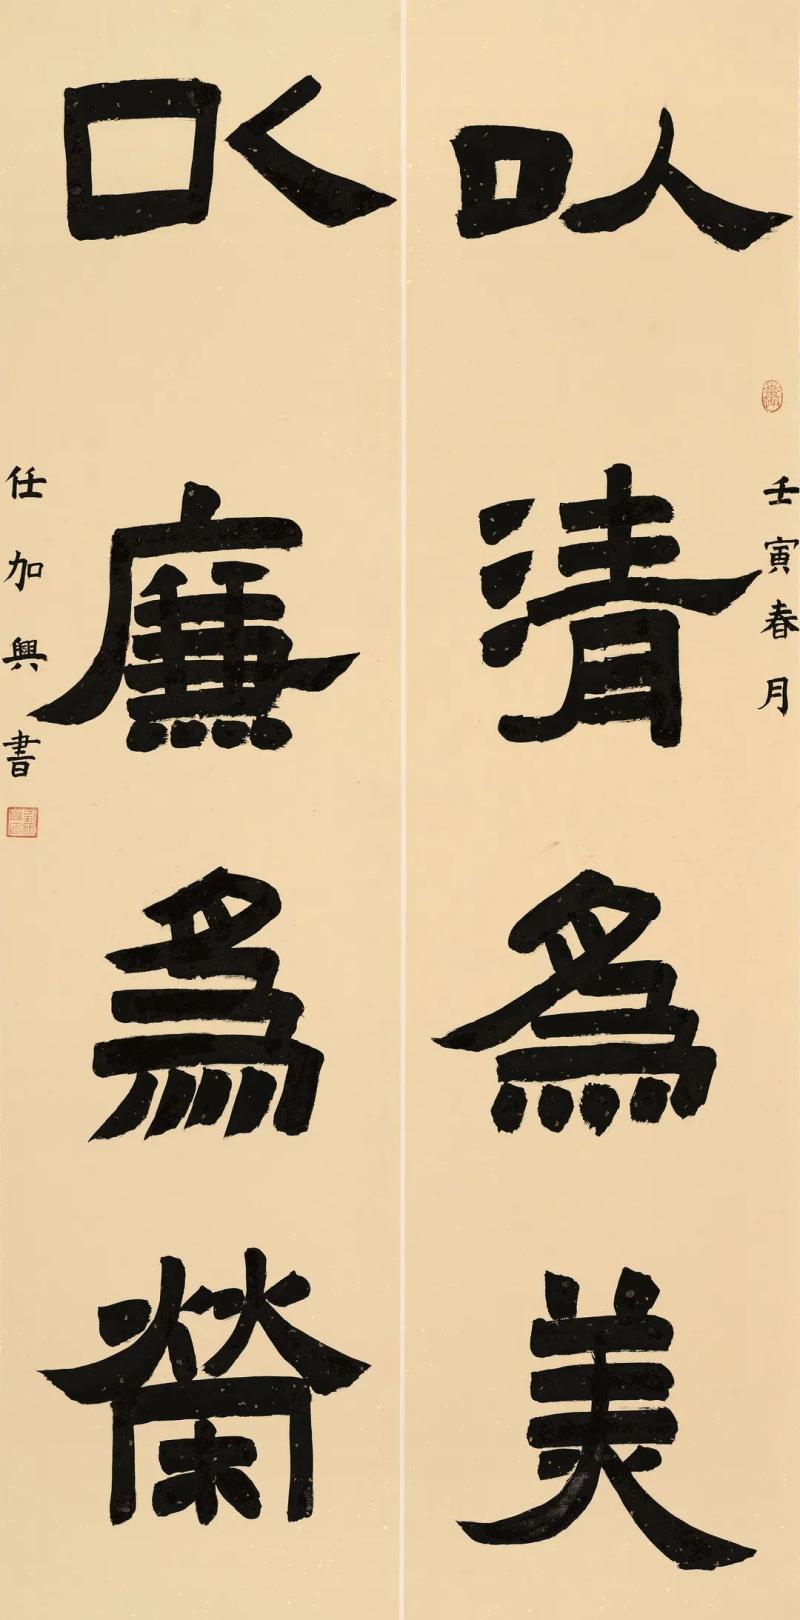 壬寅春月
以清為美
以廉為榮
任加興書